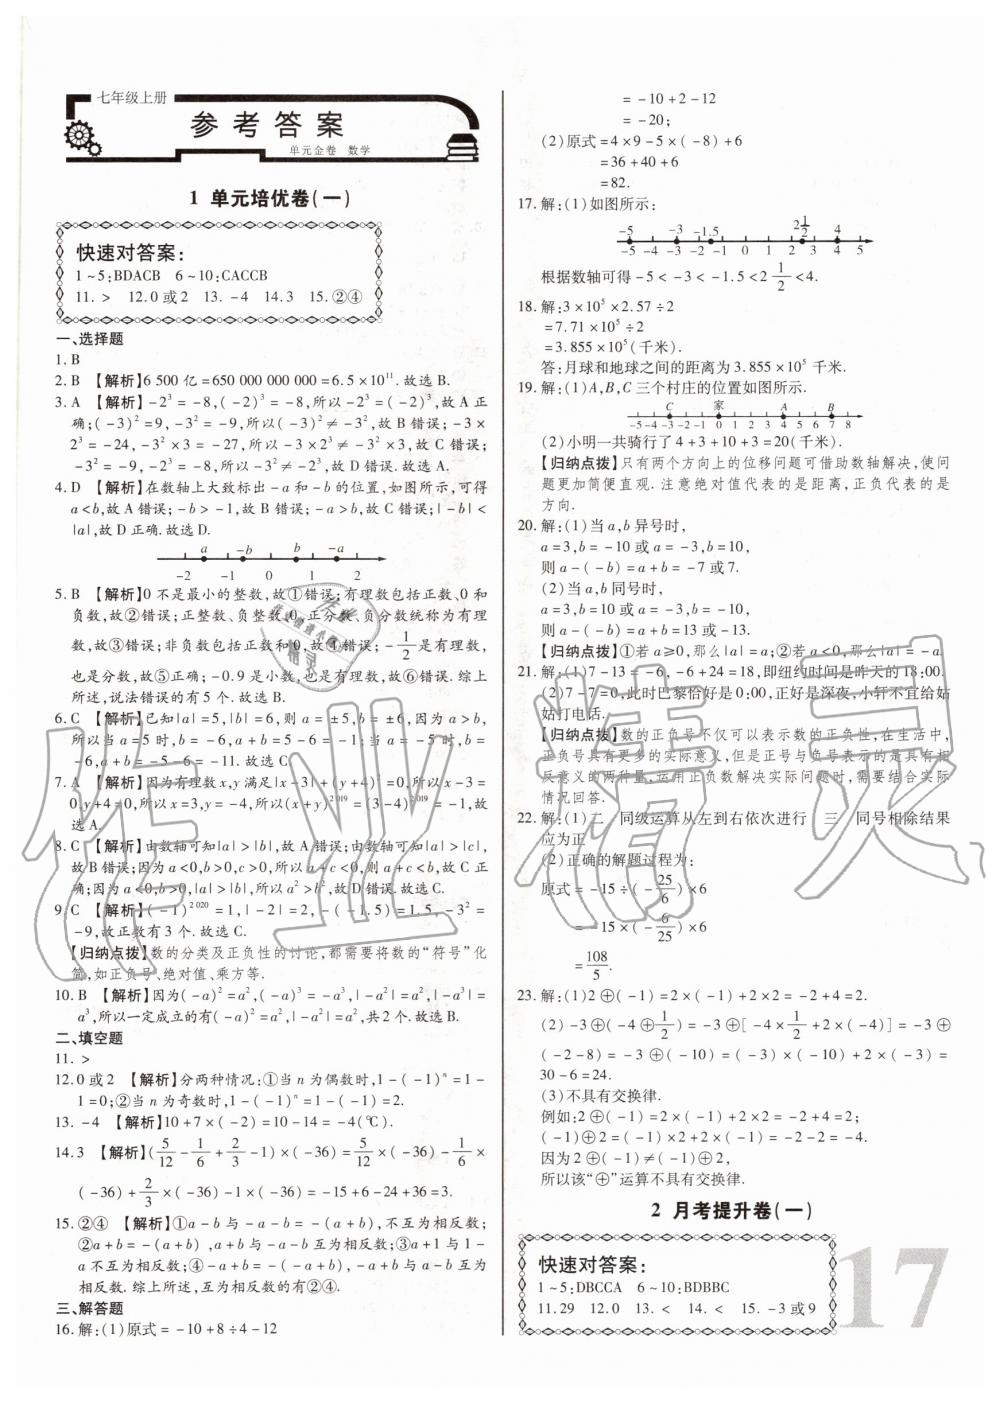 七年级上册
参考答案
单元金卷 数学
1 单元培优卷(一)
快速对答案:
1~5:BDACB 6~10:CACCB
11. > 12.0或2 13. -4 14.3 15.②④
一、选择题
1. B
2. B 【解析】6 500 亿=650 000 000 000=6.5×10¹¹.故选 B.
3. A 【解析】-2³=-8,(-2)³=-8,所以-2³=(-2)³,故 A 正
确;(-3)²=9,-3²=-9,所以(-3)²≠-3²,故 B 错误;-3×
2³=-24,-3²×3=-27,所以-3×2³≠-3²×3,故 C 错误;
-3²=-9,-2³=-8,所以-3²≠-2³,故 D 错误.故选 A.
4. D 【解析】在数轴上大致标出-a和-b的位置,如图所示,可得
a<b,故 A 错误;-b>-1,故 B 错误;-a>b,故 C 错误;|-b|<
|a|,故 D 正确.故选 D.
a -b b -a
-2 -1 0 1 2
5. B 【解析】0 不是最小的整数,故①错误;有理数包括正数、0 和
负数,故②错误;正整数、负整数、0、正分数、负分数统称为有理
数,故③错误;非负数包括正数和 0,故④错误;-1/2是有理数,
也是分数,故⑤正确;-0.9 是小数,也是有理数,故⑥错误.综上
所述,说法错误的有 5 个.故选 B.
6. C 【解析】已知|a|=5,|b|=6,则 a=±5,b=±6,因为 a>b,
所以当 a=5 时,b=-6,a+b=5-6=-1;当 a=-5 时,b=
-6,a+b=-5-6=-11.故选 C.
7. A 【解析】因为有理数x,y满足|x-3|+(y+4)²=0,所以x-3=
0,y+4=0,所以x=3,y=-4,所以(x+y)²⁰¹⁹=(3-4)²⁰¹⁹=-1,故
选 A.
8. C 【解析】由数轴可知|a|>|b|,故 A 错误;由数轴可知|a|>|c|,
故 B 错误;因为a<0,b>0,c>0,所以a+c<0,则a+c<b,故 C 正
确;因为a<0,b>0,|a|>|b|,所以a²>b²,故 D 错误.故选 C.
9. C 【解析】(-1)²⁰²⁰=1,|-2|=2,-(-1.5)=1.5,-3²=
-9,故正数有 3 个.故选 C.
【归纳点拨】数的分类及正负性的讨论,都需要将数的“符号”化
简,如正负号、绝对值、乘方等.
10. B 【解析】因为(-a)²=a²,(-a)³=-a³,|-a²|=a²,|-a³|=
a³,所以一定成立的有(-a)²=a²,|-a²|=a²,共2个.故选 B.
二、填空题
11. >
12.0或2 【解析】分两种情况:①当 n 为偶数时,1-(-1)ⁿ=1-
1=0;②当 n 为奇数时,1-(-1)ⁿ=1+1=2.
13. -4 【解析】10+7×(-2)=10-14=-4(℃).
14.3 【解析】(5/12-1/6+2/3-1)×(-36)=5/12×(-36)-1/6×
(-36)+2/3×(-36)-1×(-36)=-15+6-24+36=3.
15. ②④ 【解析】①a-b 与-a-b=-(a+b),不互为相反数;
②a+b=-(-a-b),a+b 与-a-b 互为相反数;③a+1 与1-
a不互为相反数;④-a+b=-(a-b),-a+b 与 a-b 互为相
反数.综上所述,互为相反数的有②④.
三、解答题
16. 解:(1)原式=-10+8÷4-12
=-10+2-12
=-20;
(2)原式=4×9-5×(-8)+6
=36+40+6
=82.
17. 解:(1)如图所示:
-5 -3 -1.5 2 1/2 4
-5 -4 -3 -2 -1 0 1 2 3 4 5
根据数轴可得-5<-3<-1.5<2 1/2<4.
18. 解:3×10⁵×2.57÷2
=7.71×10⁵÷2
=3.855×10⁵(千米).
答:月球和地球之间的距离为 3.855×10⁵ 千米.
19. 解:(1)A,B,C 三个村庄的位置如图所示.
C 家 A B
-5 -4 -3 -2 -1 0 1 2 3 4 5 6 7 8
(2)小明一共骑行了 4+3+10+3=20(千米).
【归纳点拨】只有两个方向上的位移问题可借助数轴解决,使问
题更加简便直观.注意绝对值代表的是距离,正负代表的是
方向.
20. 解:(1)当 a,b 异号时,
a=3,b=-10 或 a=-3,b=10,
则 a-(-b)=a+b=-7 或 7.
(2)当 a,b 同号时,
a=3,b=10 或 a=-3,b=-10,
则 a-(-b)=a+b=13 或-13.
【归纳点拨】①若 a≥0,那么|a|=a;②若 a<0,那么|a|=-a.
21. 解:(1)7-13=-6,-6+24=18,即纽约时间是昨天的18:00.
(2)7-7=0,此时巴黎恰好是0:00,正好是深夜,小轩不宜给姑
姑打电话.
【归纳点拨】数的正负号不仅可以表示数的正负性,在生活中,
正负号具有更多的实际意义,但是正号与负号表示的是具有相
反意义的两种量,运用正负数解决实际问题时,需要结合实际
情况回答.
22. 解:(1)二 同级运算从左到右依次进行 三 同号相除结果
应为正
(2)正确的解题过程为:
原式=-15÷(-25/6)×6
=-15×(-6/25)×6
=108/5.
23. 解:(1)2⊕(-1)=2×(-1)+2×2=-2+4=2.
(2)-3⊕(-4⊕1/2)=-3⊕[-4×1/2+2×(-4)]=-3⊕
(-2-8)=-3⊕(-10)=(-3)×(-10)+2×(-3)=
30-6=24.
(3)不具有交换律.
例如:2⊕(-1)=2×(-1)+2×2=-2+4=2;
(-1)⊕2=(-1)×2+2×(-1)=-2-2=-4.
因为2⊕(-1)≠(-1)⊕2,
所以该“⊕”运算不具有交换律.
2 月考提升卷(一)
快速对答案:
1~5:DBCCA 6~10:BDBBC
11.29 12.0 13.< 14.< 15.-3或9
17
作业精灵